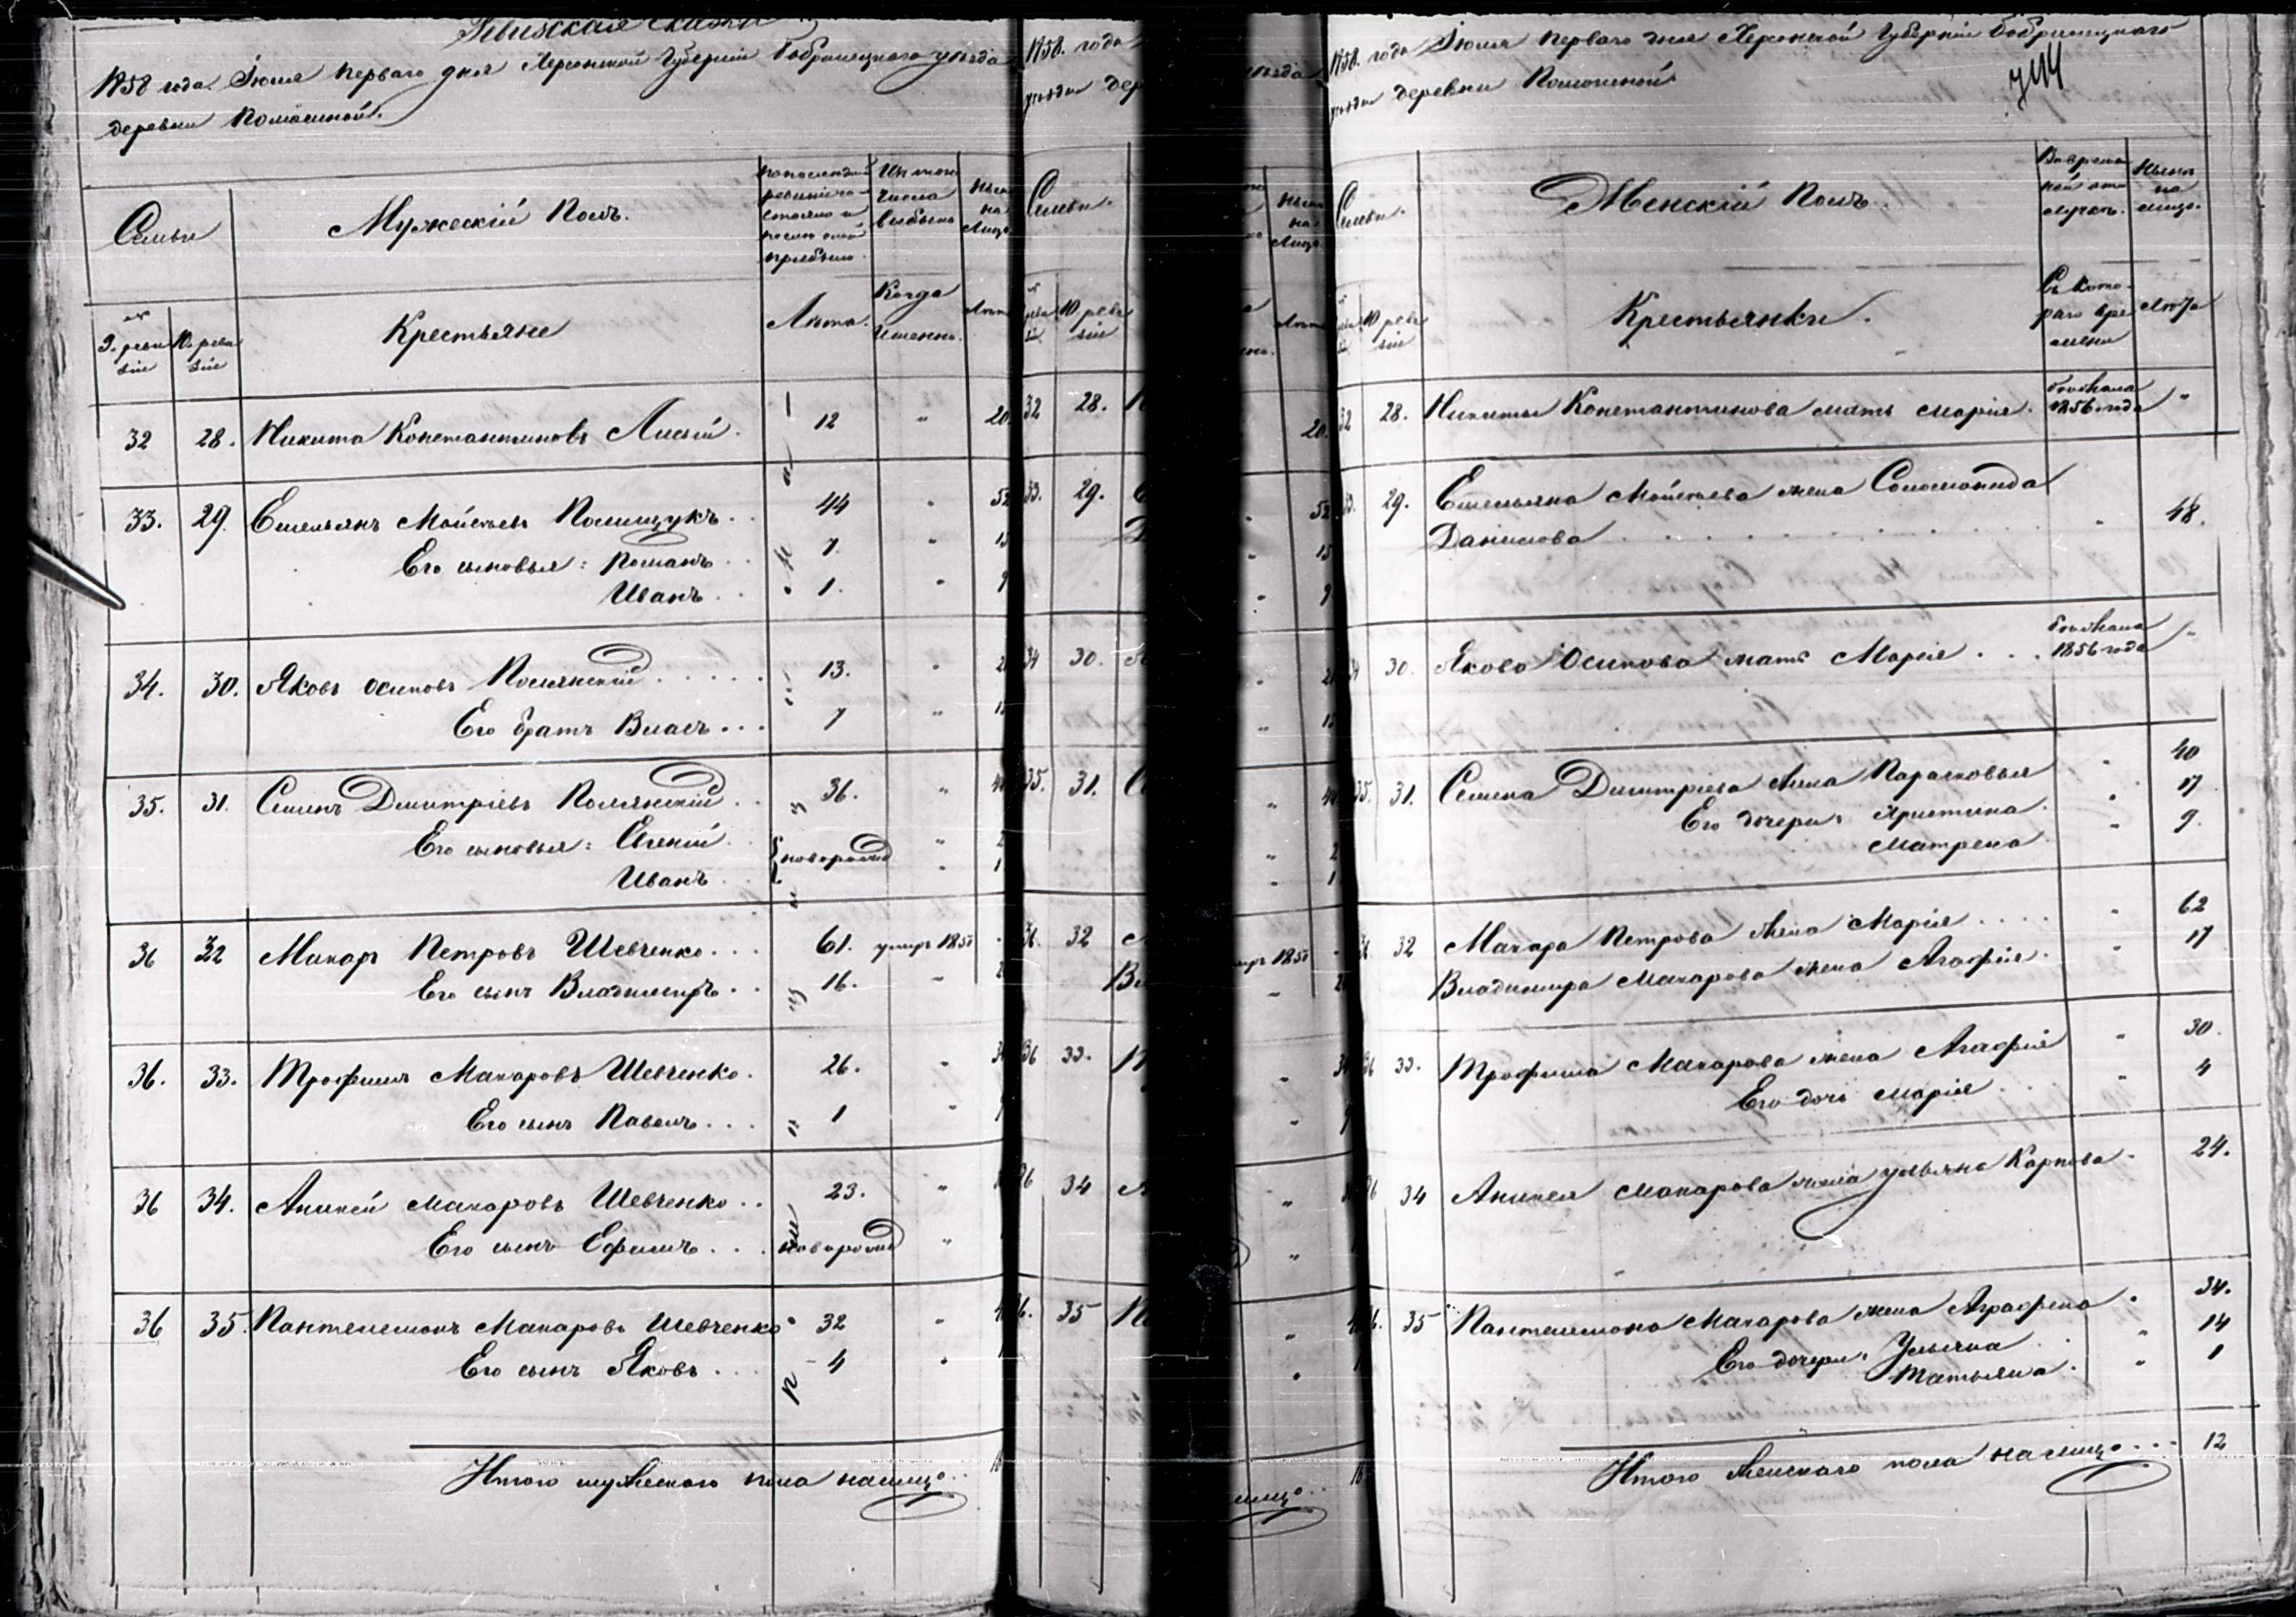 Ревизская сказка
1858 года Июня перваго дня Херсонской Губерніи Бобринецкаго уезда
деревни Помошной.
Семьи
Мужескій Полъ.
По последней
ревизіи со-
стояло и
после оной
прибыло.
Изъ того
числа
выбыло
Ныне
на
лицо
9. реви
зіи
10. реви
зіи
Крестьяне
Лета.
Когда
именно.
Лета
32 28. Никита Константиновъ Лисій. 12 " 20
33. 29. Емельянъ Мойсеевъ Полищукъ 44 " 52
Его сыновья: Романъ 7. " 15
Иванъ 1. " 9
34. 30. Яковъ Осиповъ Полянскій 13. " 21
Его братъ Власъ 7 " 15
35. 31. Семенъ Дмитріевъ Полянскій 36. " 44
Его сыновья: Евгеній новорожд " 2
Иванъ " 1
36 32 Макаръ Петровъ Шевченко 61. умеръ 185
Его сынъ Владимиръ 16. " 2
36. 33. Трофимъ Макаровъ Шевченко. 26. " 3
Его сынъ Павелъ 1 " 9
36 34. Аникей Макаровъ Шевченко 23. "
Его сынъ Ефимъ новорожд "
36 35. Пантелемонъ Макаровъ Шевченко 32 "
Его сынъ Яковъ 4 "
Итого мужескаго пола налицо 16
1858. года
уезда дер
Семьи.
10 реви
зіи
32 28.
33. 29.
34 30.
35. 31.
36. 32
36 33.
36 34
36. 35
1858. года Июня перваго дня Херсонской Губерніи Бобринецкаго
уезда деревни Помошной
744
Семьи.
Женскій Полъ.
Во времен
ной от
лучке.
Ныне
на
лицо.
10 реви
зіи
Крестьянки.
Съ кото-
раго вре
мени
Лета
32 28. Никиты Константинова мать Марія. бежала
1856 года "
33. 29. Емельяна Мойсеева жена Соломонида
Данилова " 48.
34 30. Якова Осипова мать Марія бежала
1856 года "
35. 31. Семена Дмитріева жена Парасковья " 40
Его дочери: Христина " 17
Матрена " 9.
36. 32 Макара Петрова жена Марія " 62
Владимира Макарова жена Агафія " 17
36 33. Трофима Макарова жена Агафія " 30.
Его дочь Марія " 4
36 34 Аникея Макарова жена Ульяна Карпова 24.
36. 35 Пантелемона Макарова жена Аграфена " 34.
Его дочери: Ульяна " 14
Татьяна " 1
Итого женскаго пола налицо 12